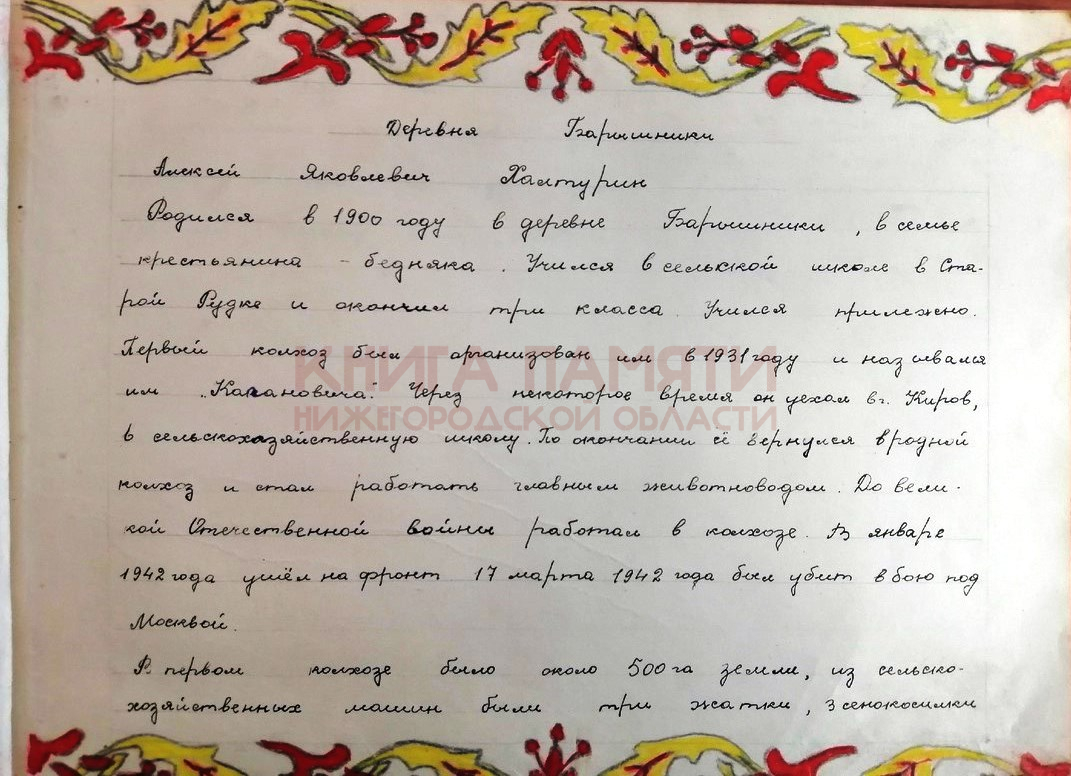 Деревня Барышники
Алексей Яковлевич Халтурин
Родился в 1900 году в деревне Барышники, в семье
крестьянина - бедняка. Учился в сельской школе в Ста-
рой Рудке и окончил три класса. Учился прилежно.
Первый колхоз был организован им в 1931 году и назывался
КНИГА ПАМЯТИ
им „Кагановича". Через некоторое время он уехал в г. Киров,
НИЖЕГОРОДСКОЙ ОБЛАСТИ
в сельскохозяйственную школу. По окончании её вернулся в родной
колхоз и стал работать главным животноводом. До Вели-
кой Отечественной войны работал в колхозе. В январе
1942 года ушёл на фронт 17 марта 1942 года был убит в бою под
Москвой.
В первом колхозе было около 500 га земли, из сельско-
хозяйственных машин были три жатки, 3 сенокосилки